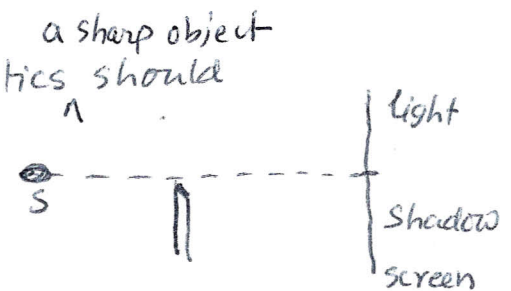 a sharp object
tics should
^
light
S
shadow
screen